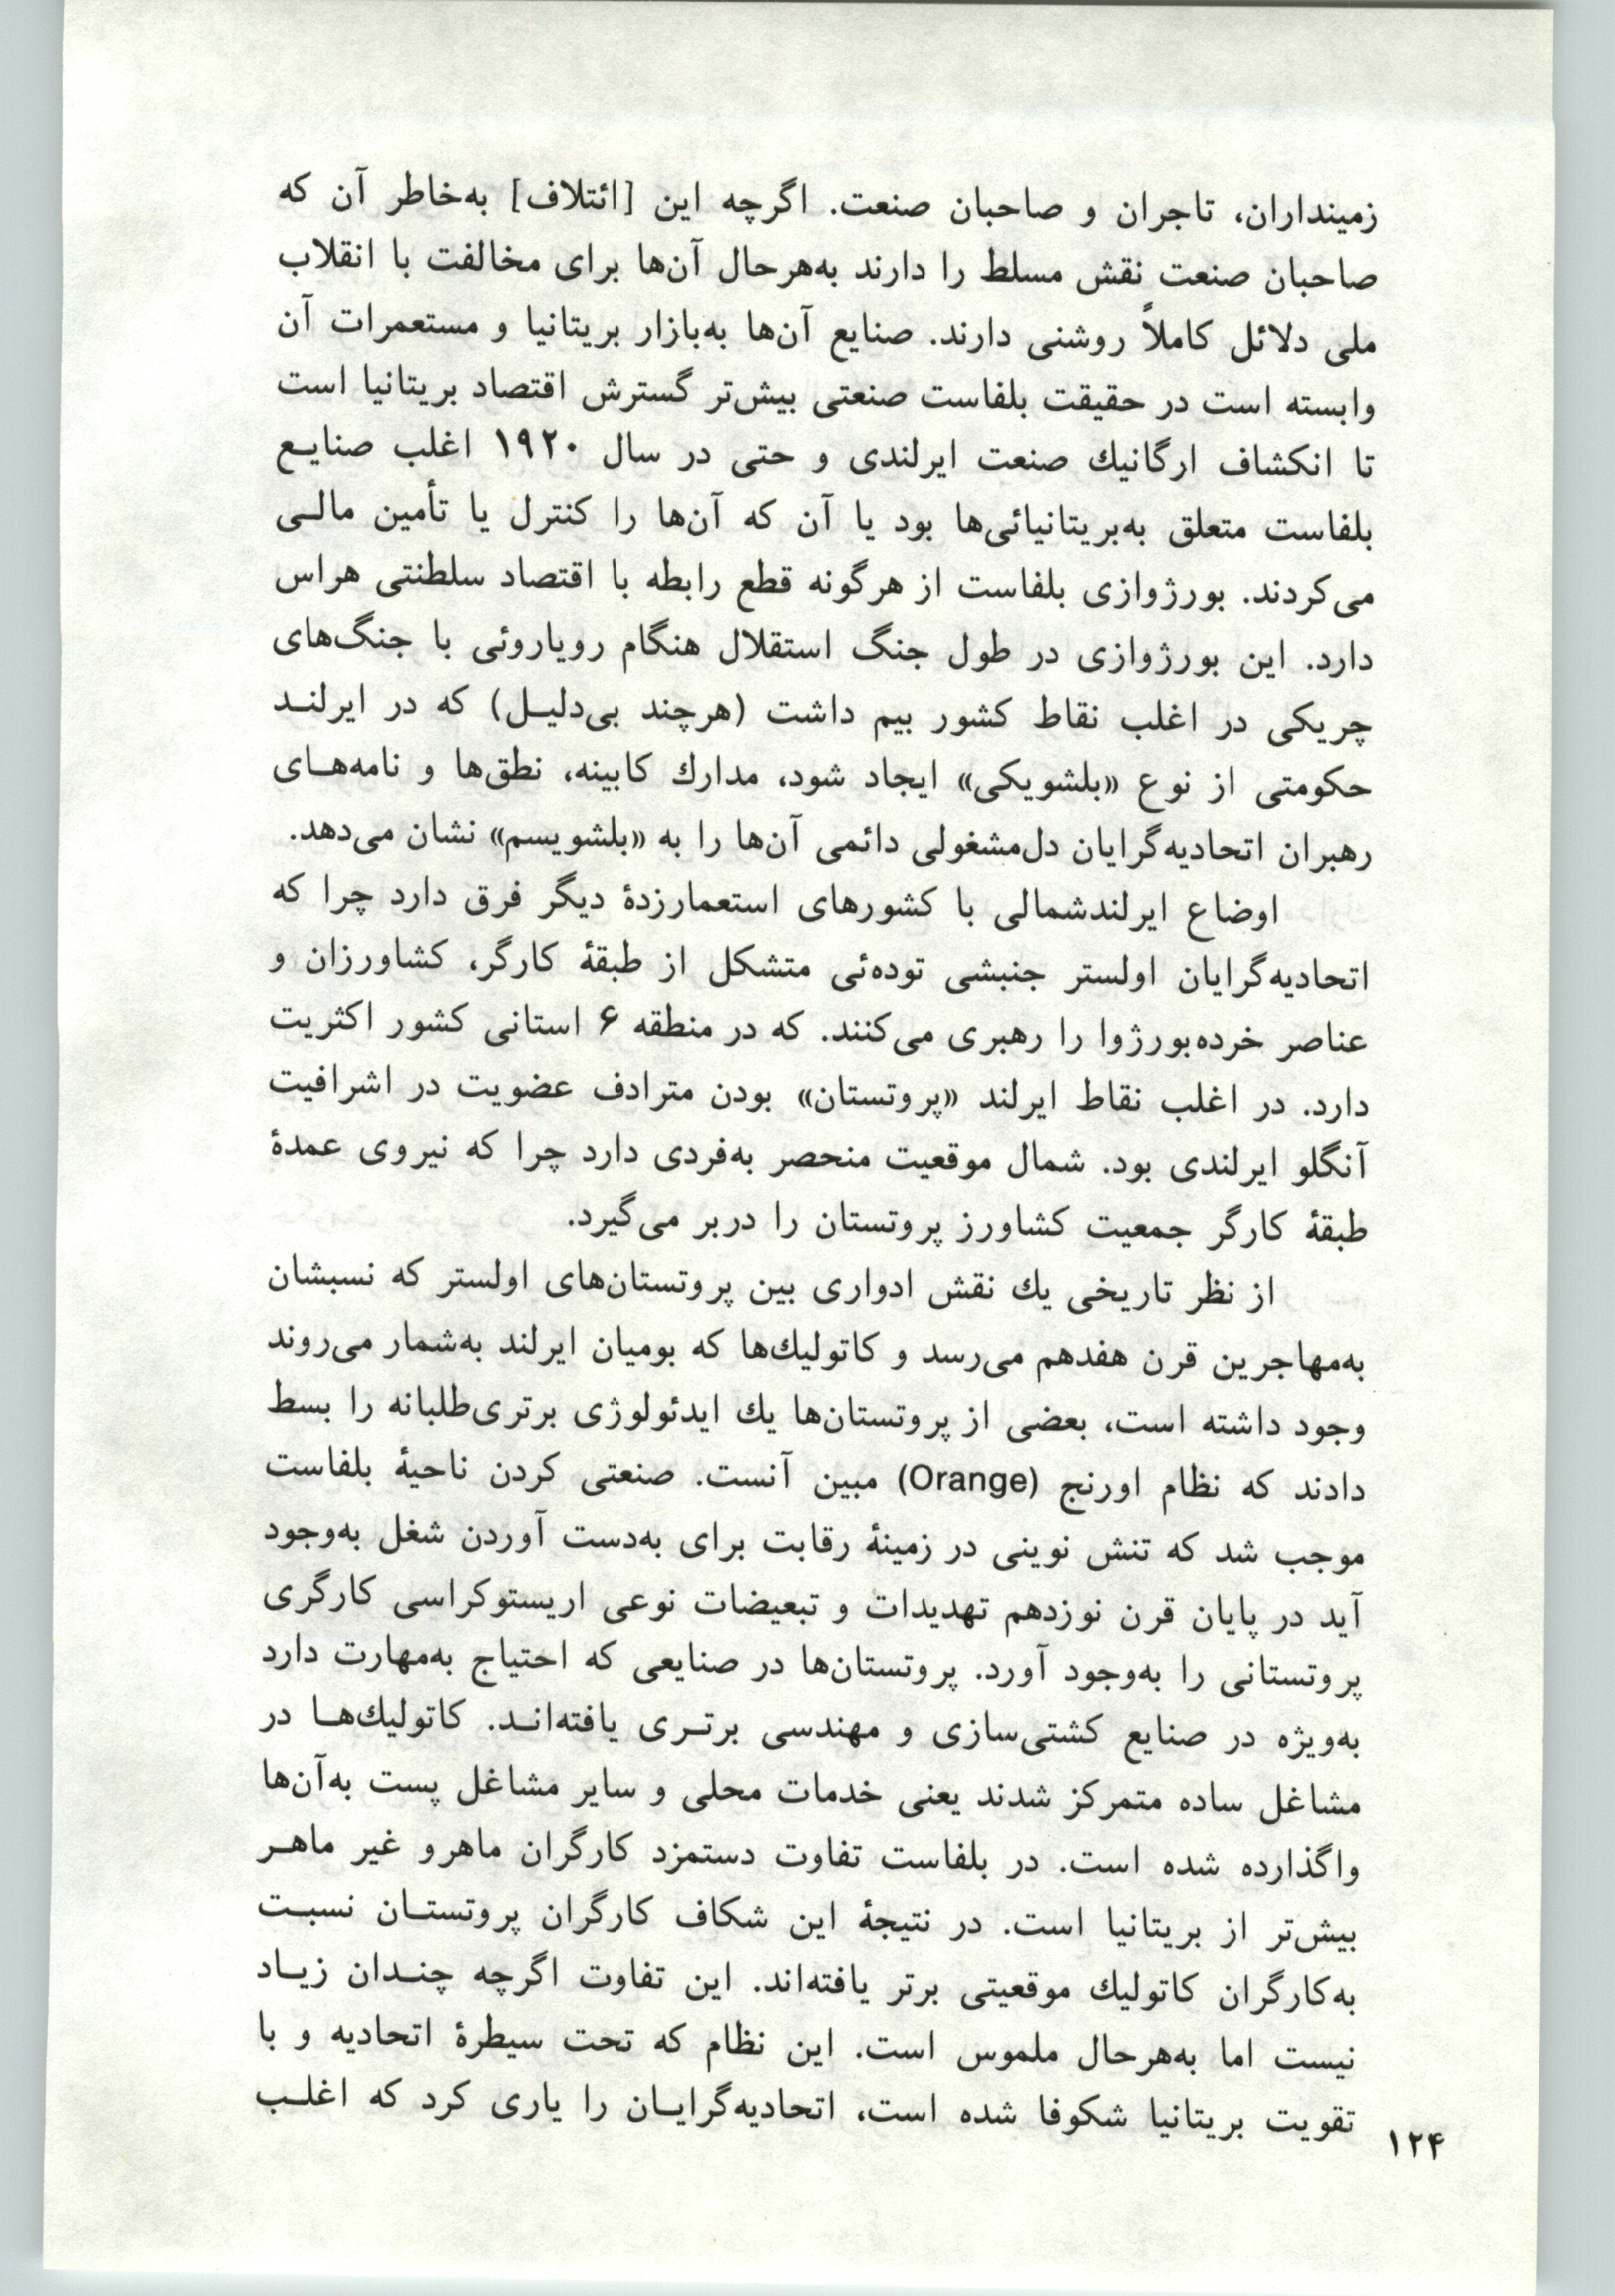 زمینداران، تاجران و صاحبان صنعت. اگرچه این [ائتلاف] به‌خاطر آن که
صاحبان صنعت نقش مسلط را دارند به‌هرحال آن‌ها برای مخالفت با انقلاب
ملی دلائل کاملاً روشنی دارند. صنایع آن‌ها به‌بازار بریتانیا و مستعمرات آن
وابسته است در حقیقت بلفاست صنعتی بیش‌تر گسترش اقتصاد بریتانیا است
تا انکشاف ارگانیك صنعت ایرلندی و حتی در سال ۱۹۲۰ اغلب صنایع
بلفاست متعلق به‌بریتانیائی‌ها بود یا آن که آن‌ها را کنترل یا تأمین مالی
می‌کردند. بورژوازی بلفاست از هرگونه قطع رابطه با اقتصاد سلطنتی هراس
دارد. این بورژوازی در طول جنگ استقلال هنگام رویاروئی با جنگ‌های
چریکی در اغلب نقاط کشور بیم داشت (هرچند بی‌دلیل) که در ایرلند
حکومتی از نوع «بلشویکی» ایجاد شود، مدارك کابینه، نطق‌ها و نامه‌های
رهبران اتحادیه‌گرایان دل‌مشغولی دائمی آن‌ها را به «بلشویسم» نشان می‌دهد.
اوضاع ایرلندشمالی با کشورهای استعمارزدهٔ دیگر فرق دارد چرا که
اتحادیه‌گرایان اولستر جنبشی توده‌ئی متشکل از طبقهٔ کارگر، کشاورزان و
عناصر خرده‌بورژوا را رهبری می‌کنند. که در منطقه ۶ استانی کشور اکثریت
دارد. در اغلب نقاط ایرلند «پروتستان» بودن مترادف عضویت در اشرافیت
آنگلو ایرلندی بود. شمال موقعیت منحصر به‌فردی دارد چرا که نیروی عمدهٔ
طبقهٔ کارگر جمعیت کشاورز پروتستان را دربر می‌گیرد.
از نظر تاریخی یك نقش ادواری بین پروتستان‌های اولستر که نسبشان
به‌مهاجرین قرن هفدهم می‌رسد و کاتولیك‌ها که بومیان ایرلند به‌شمار می‌روند
وجود داشته است، بعضی از پروتستان‌ها یك ایدئولوژی برتری‌طلبانه را بسط
دادند که نظام اورنج (Orange) مبین آنست. صنعتی کردن ناحیهٔ بلفاست
موجب شد که تنش نوینی در زمینهٔ رقابت برای به‌دست آوردن شغل به‌وجود
آید در پایان قرن نوزدهم تهدیدات و تبعیضات نوعی اریستوکراسی کارگری
پروتستانی را به‌وجود آورد. پروتستان‌ها در صنایعی که احتیاج به‌مهارت دارد
به‌ویژه در صنایع کشتی‌سازی و مهندسی برتری یافته‌اند. کاتولیك‌ها در
مشاغل ساده متمرکز شدند یعنی خدمات محلی و سایر مشاغل پست به‌آن‌ها
واگذارده شده است. در بلفاست تفاوت دستمزد کارگران ماهرو غیر ماهر
بیش‌تر از بریتانیا است. در نتیجهٔ این شکاف کارگران پروتستان نسبت
به‌کارگران کاتولیك موقعیتی برتر یافته‌اند. این تفاوت اگرچه چندان زیاد
نیست اما به‌هرحال ملموس است. این نظام که تحت سیطرهٔ اتحادیه و با
تقویت بریتانیا شکوفا شده است، اتحادیه‌گرایان را یاری کرد که اغلب
۱۲۴